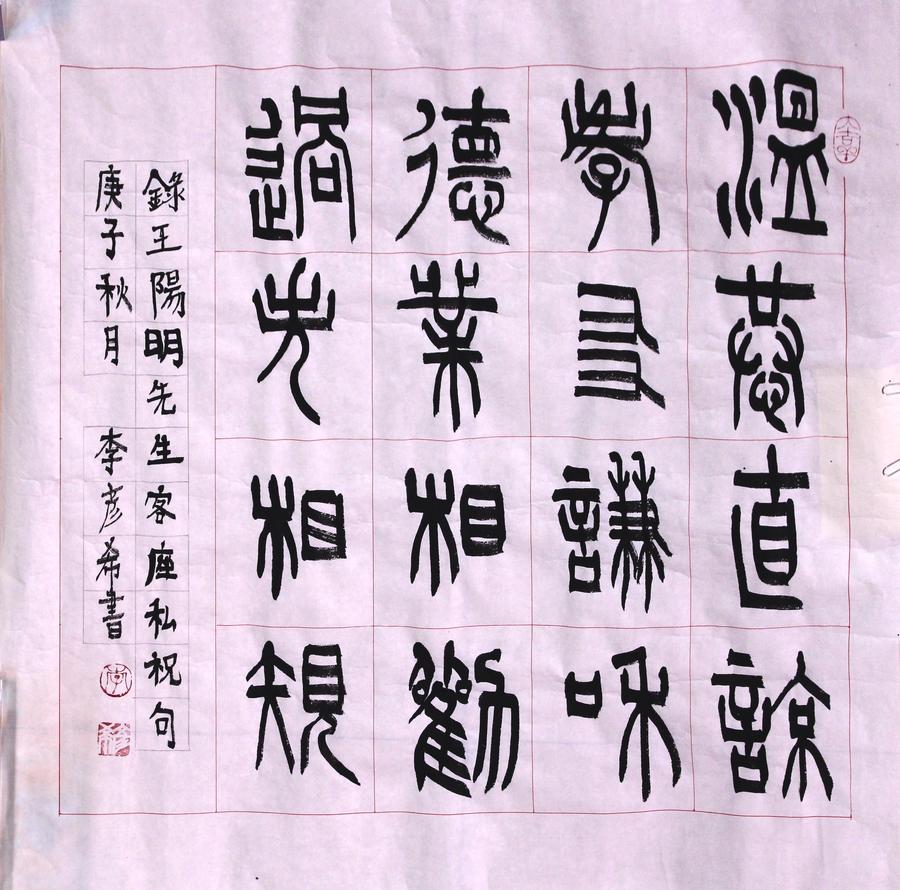 溫恭直諒
孝友謙和
德業相勸
過失相規
錄王陽明先生客座私祝句
庚子秋月 李彥希書